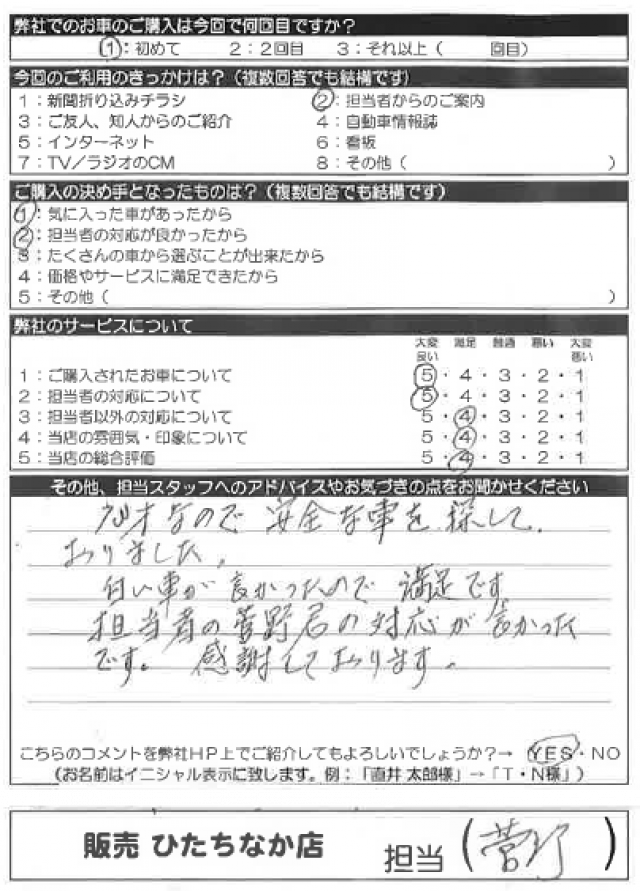 弊社でのお車のご購入は今回で何回目ですか？
1：初めて　2：2回目　3：それ以上（　　回目）
今回のご利用のきっかけは？（複数回答でも結構です）
1：新聞折り込みチラシ　2：担当者からのご案内
3：ご友人、知人からのご紹介　4：自動車情報誌
5：インターネット　6：看板
7：TV／ラジオのCM　8：その他（　　）
ご購入の決め手となったものは？（複数回答でも結構です）
1：気に入った車があったから
2：担当者の対応が良かったから
3：たくさんの車から選ぶことが出来たから
4：価格やサービスに満足できたから
5：その他（　　）
弊社のサービスについて
大変良い　満足　普通　悪い　大変悪い
1：ご購入されたお車について　5・4・3・2・1
2：担当者の対応について　5・4・3・2・1
3：担当者以外の対応について　5・4・3・2・1
4：当店の雰囲気・印象について　5・4・3・2・1
5：当店の総合評価　5・4・3・2・1
その他、担当スタッフへのアドバイスやお気づきの点をお聞かせください
才なので 安全な車を探して
おりました。
白い車が良かったので 満足です。
担当者の菅野君の対応が良かった
です。 感謝しております。
こちらのコメントを弊社HP上でご紹介してもよろしいでしょうか？→ YES・NO
（お名前はイニシャル表示に致します。例：「直井 太郎様」→「T・N様」）
販売 ひたちなか店　担当（菅野）